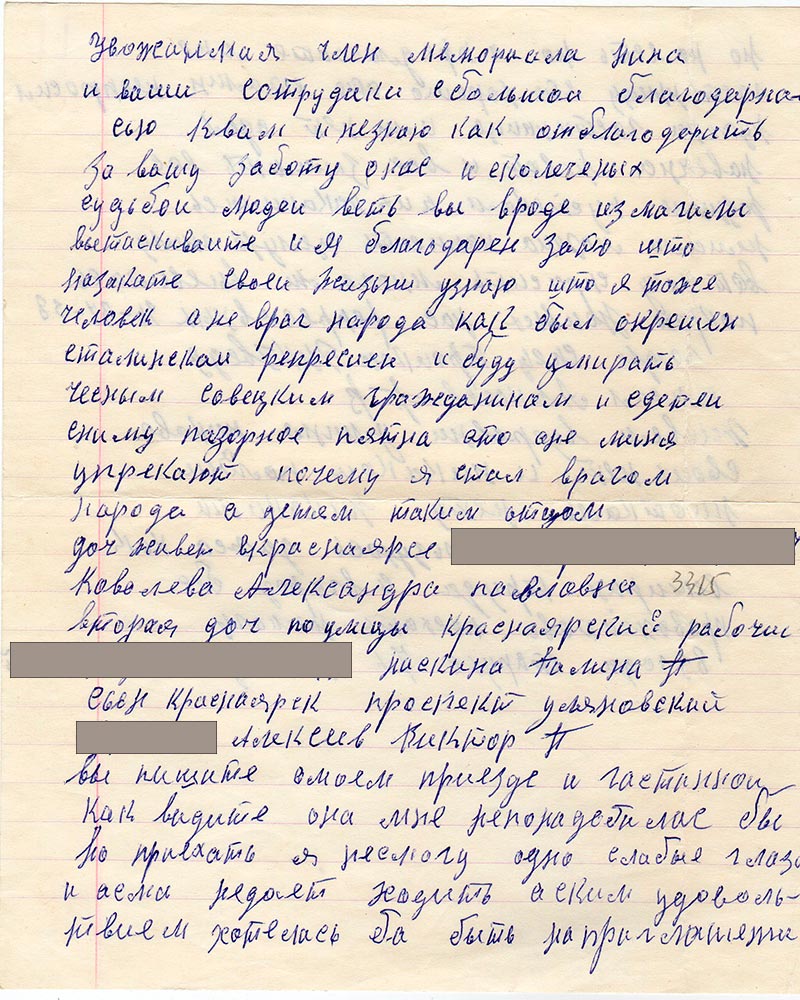 Уважаимая член меморкала Нина
и ваши сотрудаки сбольшой благодарна-
сью Квам и незнаю как отблагодорить
За вашу заботу онас и сколеченых
судьбой людей веть вы вроде из магилы
вытаскиваите и я благодарен зато што
назакате своеи жизьни узнаю што я тоже
человек а не враг народа как был окрешен
сталинскои репресией и буду умирать
чесным совецким гражданинам и сдетеи
сниму пазорное пятна ото оне миня
упрекают почему я стал врагом
народа а детям таким отцом
доч живет вКраснаярсе
Ковалева Александра павловна 3315
вторая доч по улицы Краснаярский рабочи
Паскина Галина П
Сын Краснаярск проспект ульяновский
Алексеев Виктор П
вы пишите омоем приезде и гастинной
Как видите она мне непонадобилас бы
но приехать я несмогу одно слабые глаза
и асма недает ходить а ским удоволь-
твием хотелась ба быть на приглашени